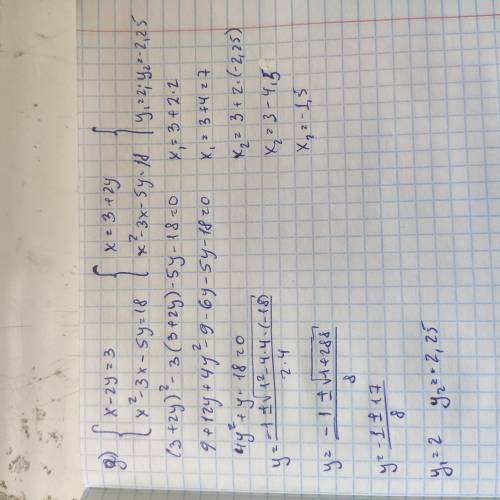 д) { x-2y=3 { x=3+2y {
x²-3x-5y=18 { x²-3x-5y=18 { y₁=2; y₂=-2,25
(3+2y)²-3(3+2y)-5y-18=0 x₁=3+2·2
9+12y+4y²-9-6y-5y-18=0 x₁=3+4=7
4y²+y-18=0 x₂=3+2·(-2,25)
y=-1±√1²-4·4·(-18) / 2·4 x₂=3-4,5
y=-1±√1+288 / 8 x₂=-1,5
y=-1±17 / 8
y₁=2 y₂=-2,25